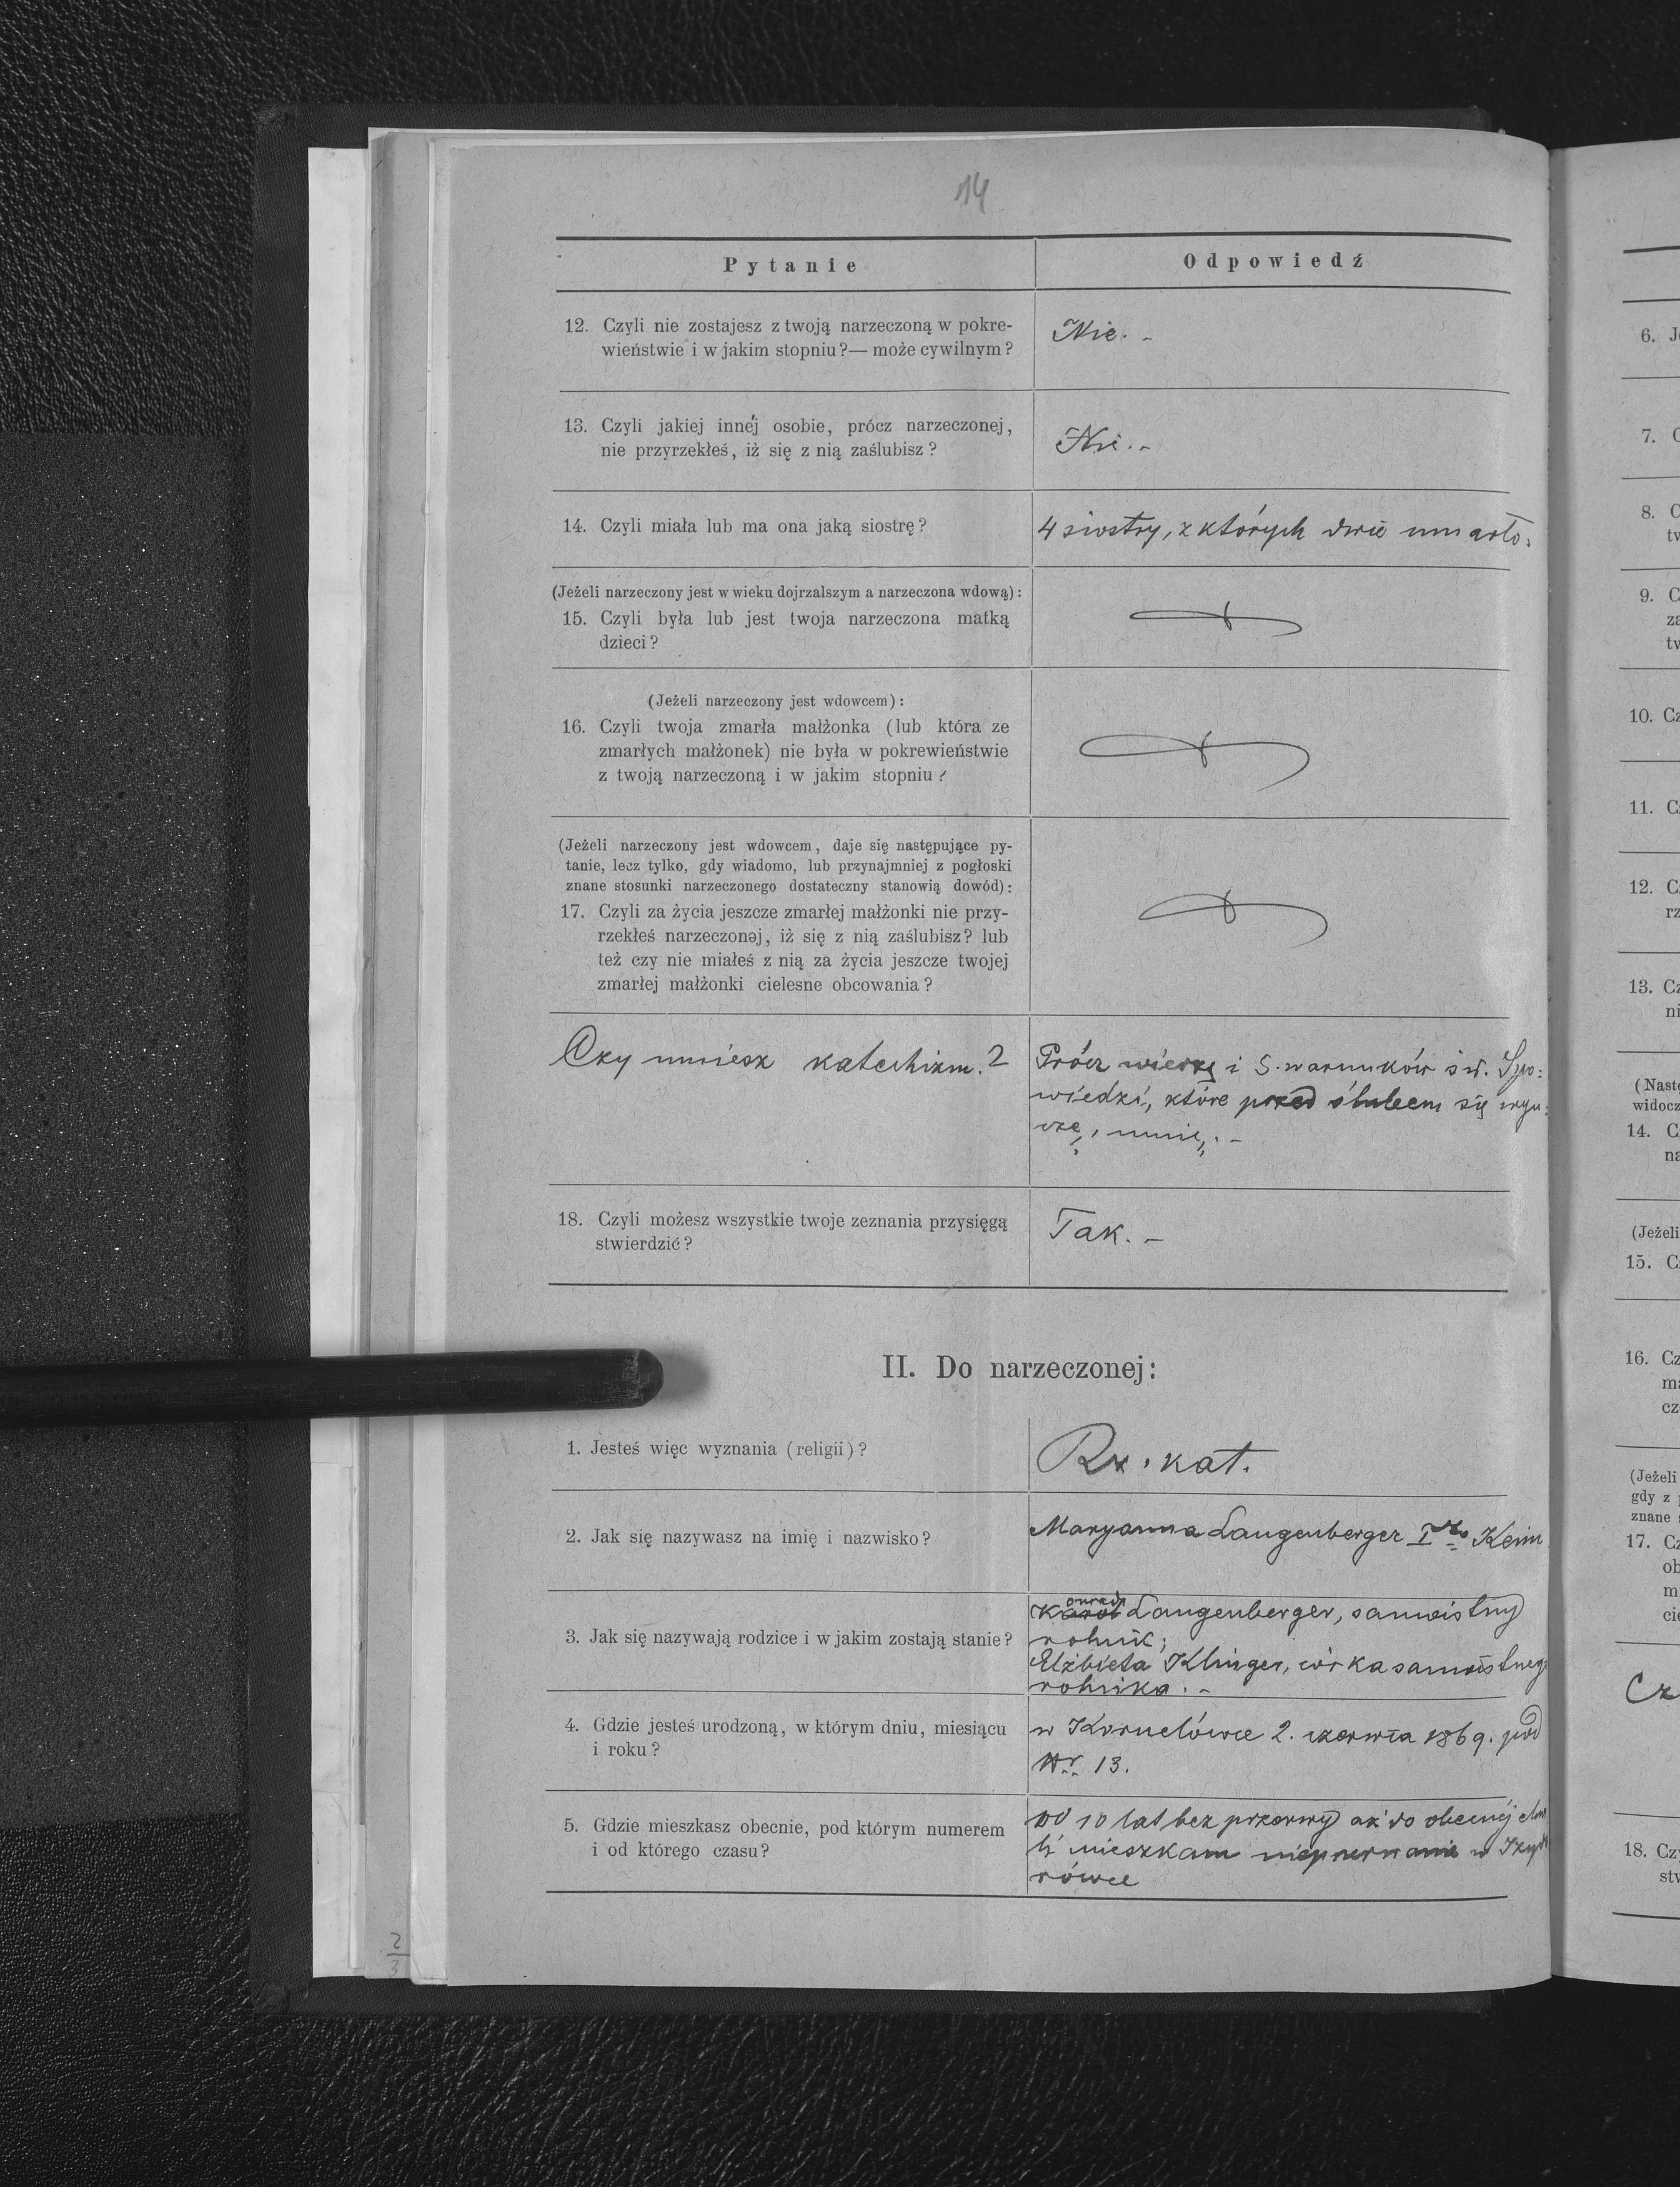 14
Pytanie
Odpowiedź
12. Czyli nie zostajesz z twoją narzeczoną w pokre-
wieństwie i w jakim stopniu?— może cywilnym?
Nie. -
13. Czyli jakiej innéj osobie, prócz narzeczonej,
nie przyrzekłeś, iż się z nią zaślubisz?
Nie. -
14. Czyli miała lub ma ona jaką siostrę?
4 siostry, z których dwie umarło.
(Jeżeli narzeczony jest w wieku dojrzalszym a narzeczona wdową):
15. Czyli była lub jest twoja narzeczona matką
dzieci?
(Jeżeli narzeczony jest wdowcem):
16. Czyli twoja zmarła małżonka (lub która ze
zmarłych małżonek) nie była w pokrewieństwie
z twoją narzeczoną i w jakim stopniu?
(Jeżeli narzeczony jest wdowcem, daje się następujące py-
tanie, lecz tylko, gdy wiadomo, lub przynajmniej z pogłoski
znane stosunki narzeczonego dostateczny stanowią dowód):
17. Czyli za życia jeszcze zmarłej małżonki nie przy-
rzekłeś narzeczonej, iż się z nią zaślubisz? lub
też czy nie miałeś z nią za życia jeszcze twojej
zmarłej małżonki cielesne obcowania?
Czy umiesz katechizm?
Prócz wierzę i 5. warunków św. Spo=
wiedzi, które przed ślubem się wyu=
czę, umię. -
18. Czyli możesz wszystkie twoje zeznania przysięgą
stwierdzić?
Tak. -
II. Do narzeczonej:
1. Jesteś więc wyznania (religii)?
Rz. kat.
2. Jak się nazywasz na imię i nazwisko?
Maryanna Langenberger Keim
3. Jak się nazywają rodzice i w jakim zostają stanie?
onrad
Karol Langenberger, samoistny
rolnik;
Elżbieta Klinger, córka samoistnego
rolnika. -
4. Gdzie jesteś urodzoną, w którym dniu, miesiącu
i roku?
w Kornelówce 2. czerwca 1869. pod
Nr. 13.
5. Gdzie mieszkasz obecnie, pod którym numerem
i od którego czasu?
Od 10 lat bez przerwy aż do obecnéj chwi
li mieszkam nieprzerwanie w
rówce
2
3
6. J
7. C
8. C
tw
9. C
za
tw
10. Cz
11. C
12. C
rz
13. Cz
ni
(Nast
widocz
14. C
na
(Jeżeli
15. C
16. Cz
ma
cz
(Jeżeli
gdy z
znane
17. Cz
ob
m
cie
Cz
18. Czy
stw